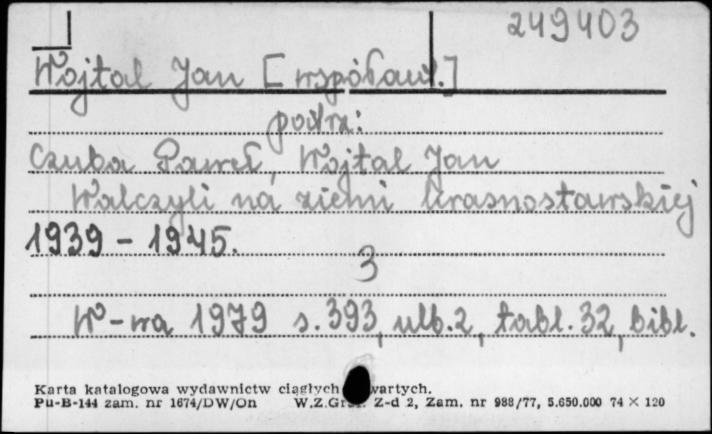 249403
Wojtal Jan [współaut.]
podrz:
Czuba Paweł, Wojtal Jan
Walczyli na ziemi krasnostawskiej
1939 - 1945.
3
W-wa 1979 s. 393, nlb. 2, tabl. 32, bibl.
Karta katalogowa wydawnictw ciągłych wartych.
Pu-B-144 zam. nr 1674/DW/On W.Z.Graf. Z-d 2, Zam. nr 988/77, 5.650.000 74 × 120